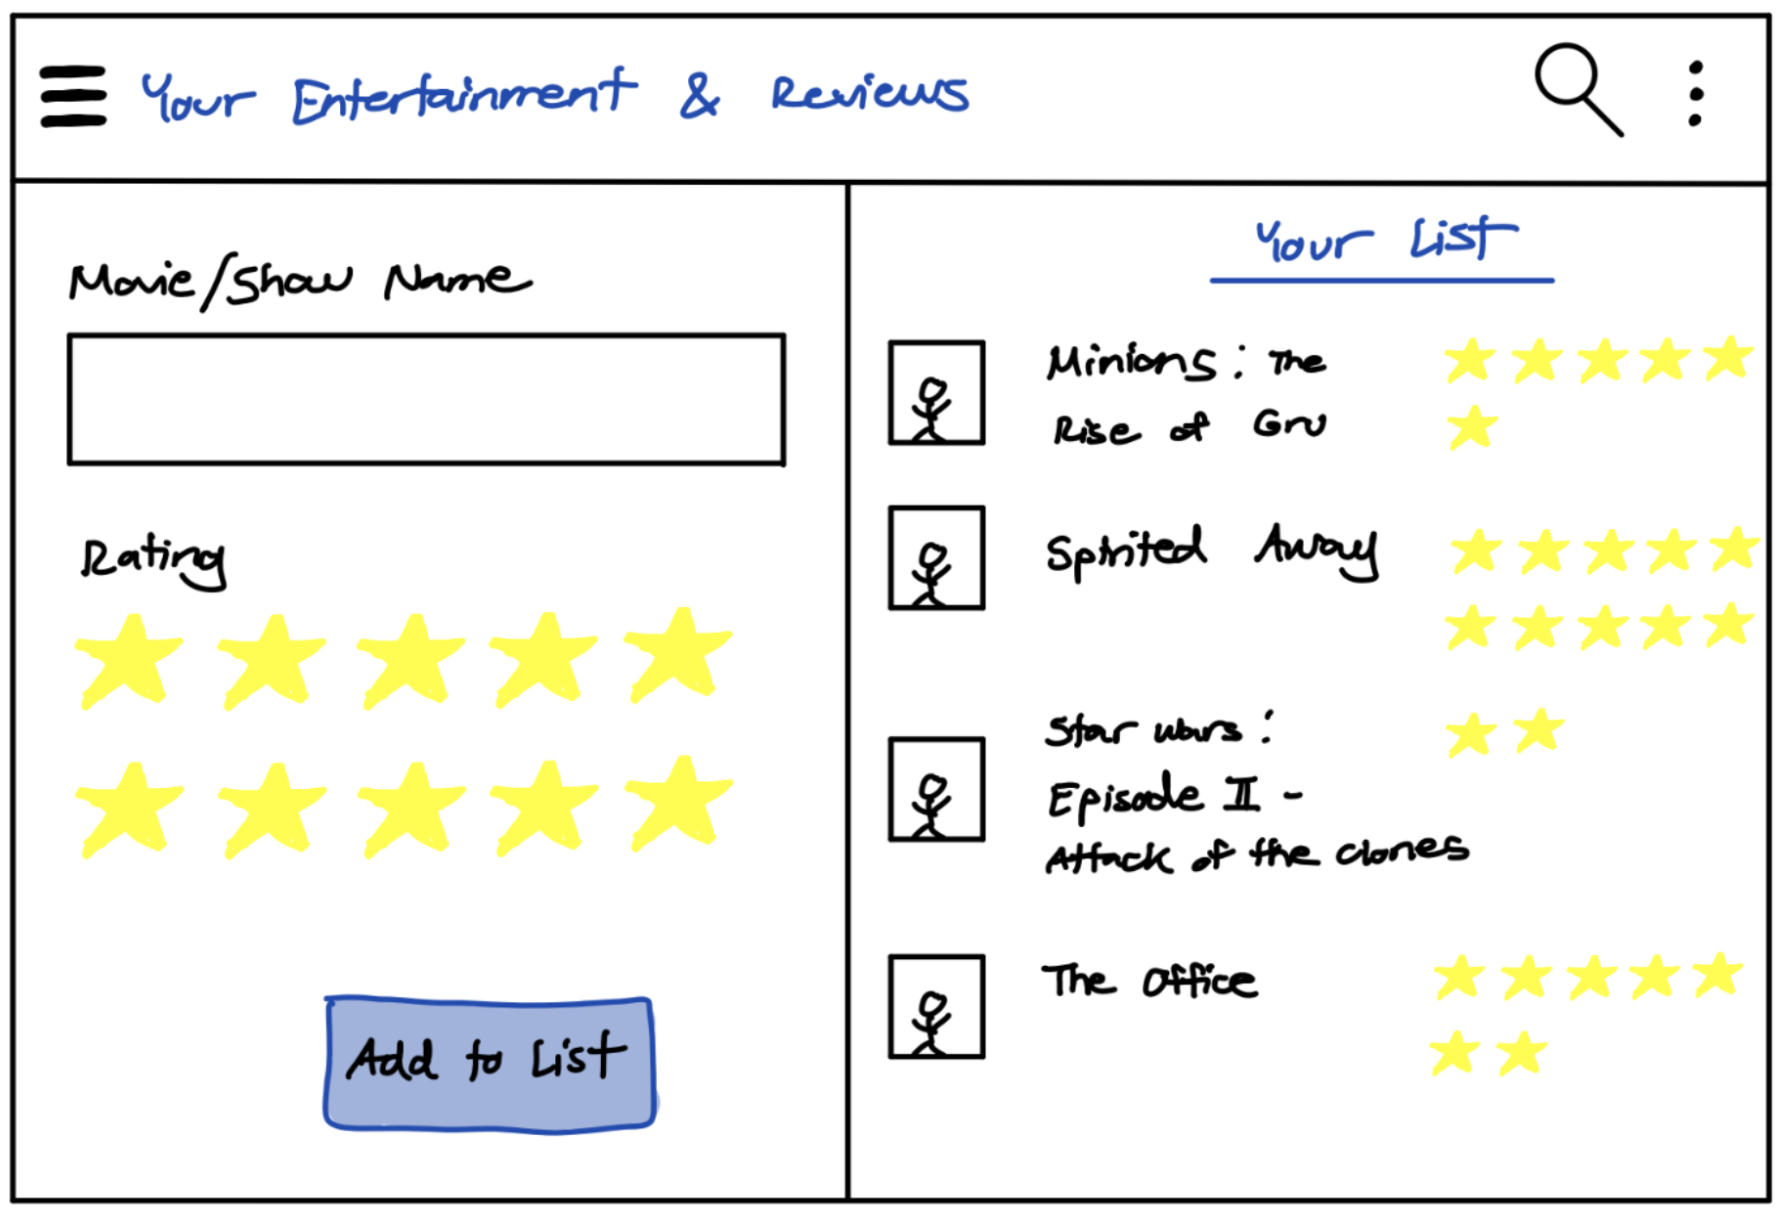 Your Entertainment & Reviews
Movie/Show Name
Rating
Add to List
Your List
Minions: The
Rise of Gru
Spirited Away
Star wars:
Episode II -
Attack of the clones
The Office